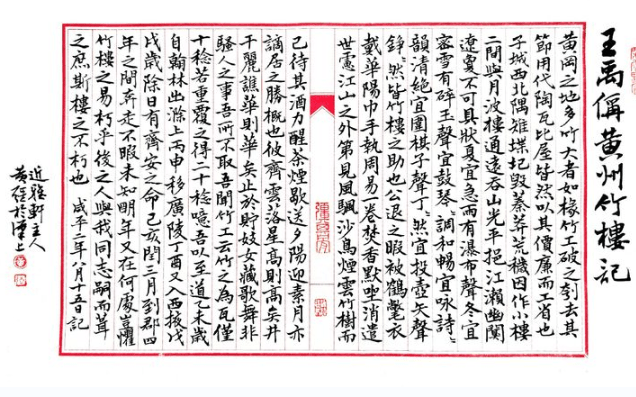 王禹偁黄州竹樓記
黄岡之地多竹大者如椽竹工破之刳去其
節用代陶瓦比屋皆然以其價廉而工省也
子城西北隅雉堞圮毀蓁莽荒穢因作小樓
二間與月波樓通遠吞山光平挹江瀨幽闃
遼夐不可具狀夏宜急雨有瀑布聲冬宜
密雪有碎玉聲宜鼓琴〻調和暢宜咏詩〻
韻清絶宜圍棋子聲丁〻然宜投壺矢聲
錚〻然皆竹樓之助也公退之暇被鶴氅衣
戴華陽巾手執周易一卷焚香默坐消遣
世慮江山之外第見風颿沙鳥煙雲竹樹而
已待其酒力醒茶煙歇送夕陽迎素月亦
謫居之勝概也彼齊雲落星高則高矣井
干麗譙華則華矣止於貯妓女藏歌舞非
騷人之事吾所不取吾聞竹工云竹之為瓦僅
十稔若重覆之得二十稔噫吾以至道乙未歲
自翰林出滁上丙申移廣陵丁酉又入西掖戊
戌歲除日有齊安之命己亥閏三月到郡四
年之間奔走不暇未知明年又在何處豈懼
竹樓之易朽乎後之人與我同志嗣而葺
之庶斯樓之不朽也 咸平二年八月十五日記
軒主人
於漢上